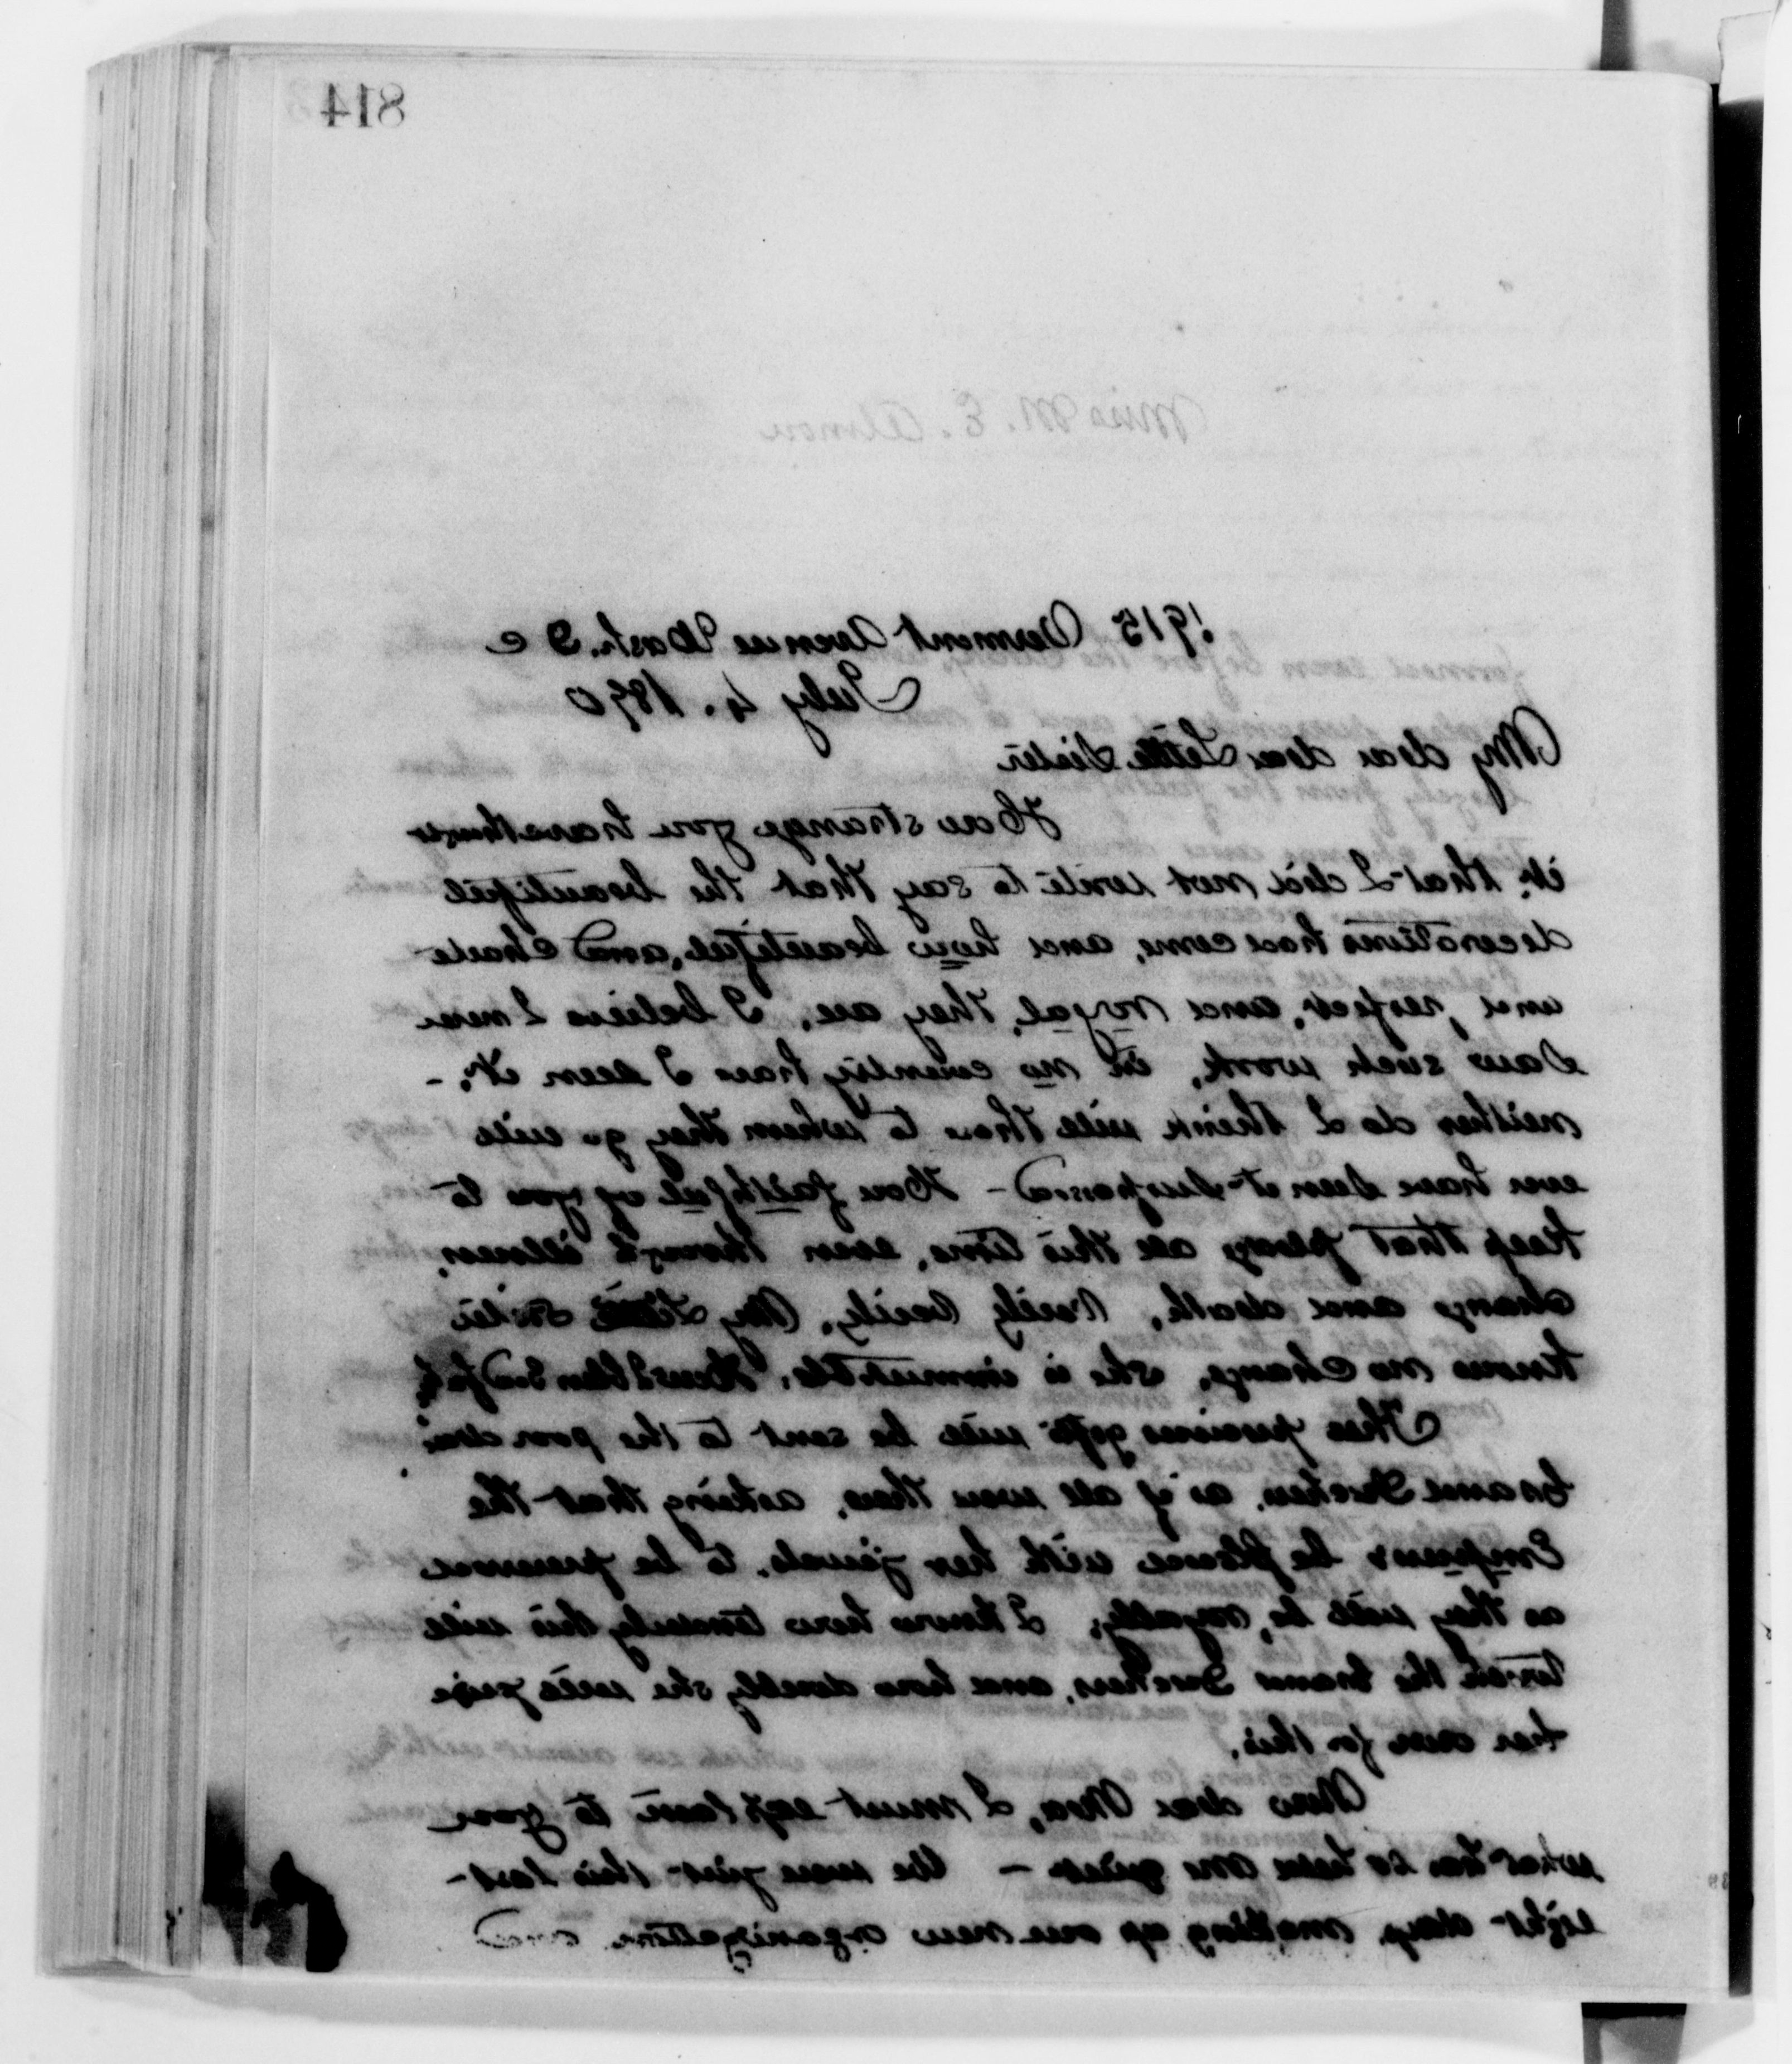 814
Miss M. E. Almon
1915 Vermont Avenue Wash. D C
July 4. 1890
My dear dear Little Sister
How strange you have thought
it, that I did not write to say that the beautiful
decorations had come, and how beautiful, and chaste
and perfect, and royal, they are, I believe I never
saw such work, in no country have I seen it, -
neither do I think will those to whom they go will
ever have seen it surpassed - How faithful of you to
keep that pledge all this time, even through illness,
change and death, Verily Verily, My Little Sister
knows no change, she is immutable,
These precious gifts will be sent to the poor dear
Grand Duchess, as if all were there, asking that the
Empress' be placed with her jewels, to be preserved
as they will be, royally, I know how tenderly this will
touch the Grand Duchess, and how dearly she will prize
her own for this.
Now dear Mea, I must explain to you
what has so held me quiet - We were just this last
eight days making up our new organization and